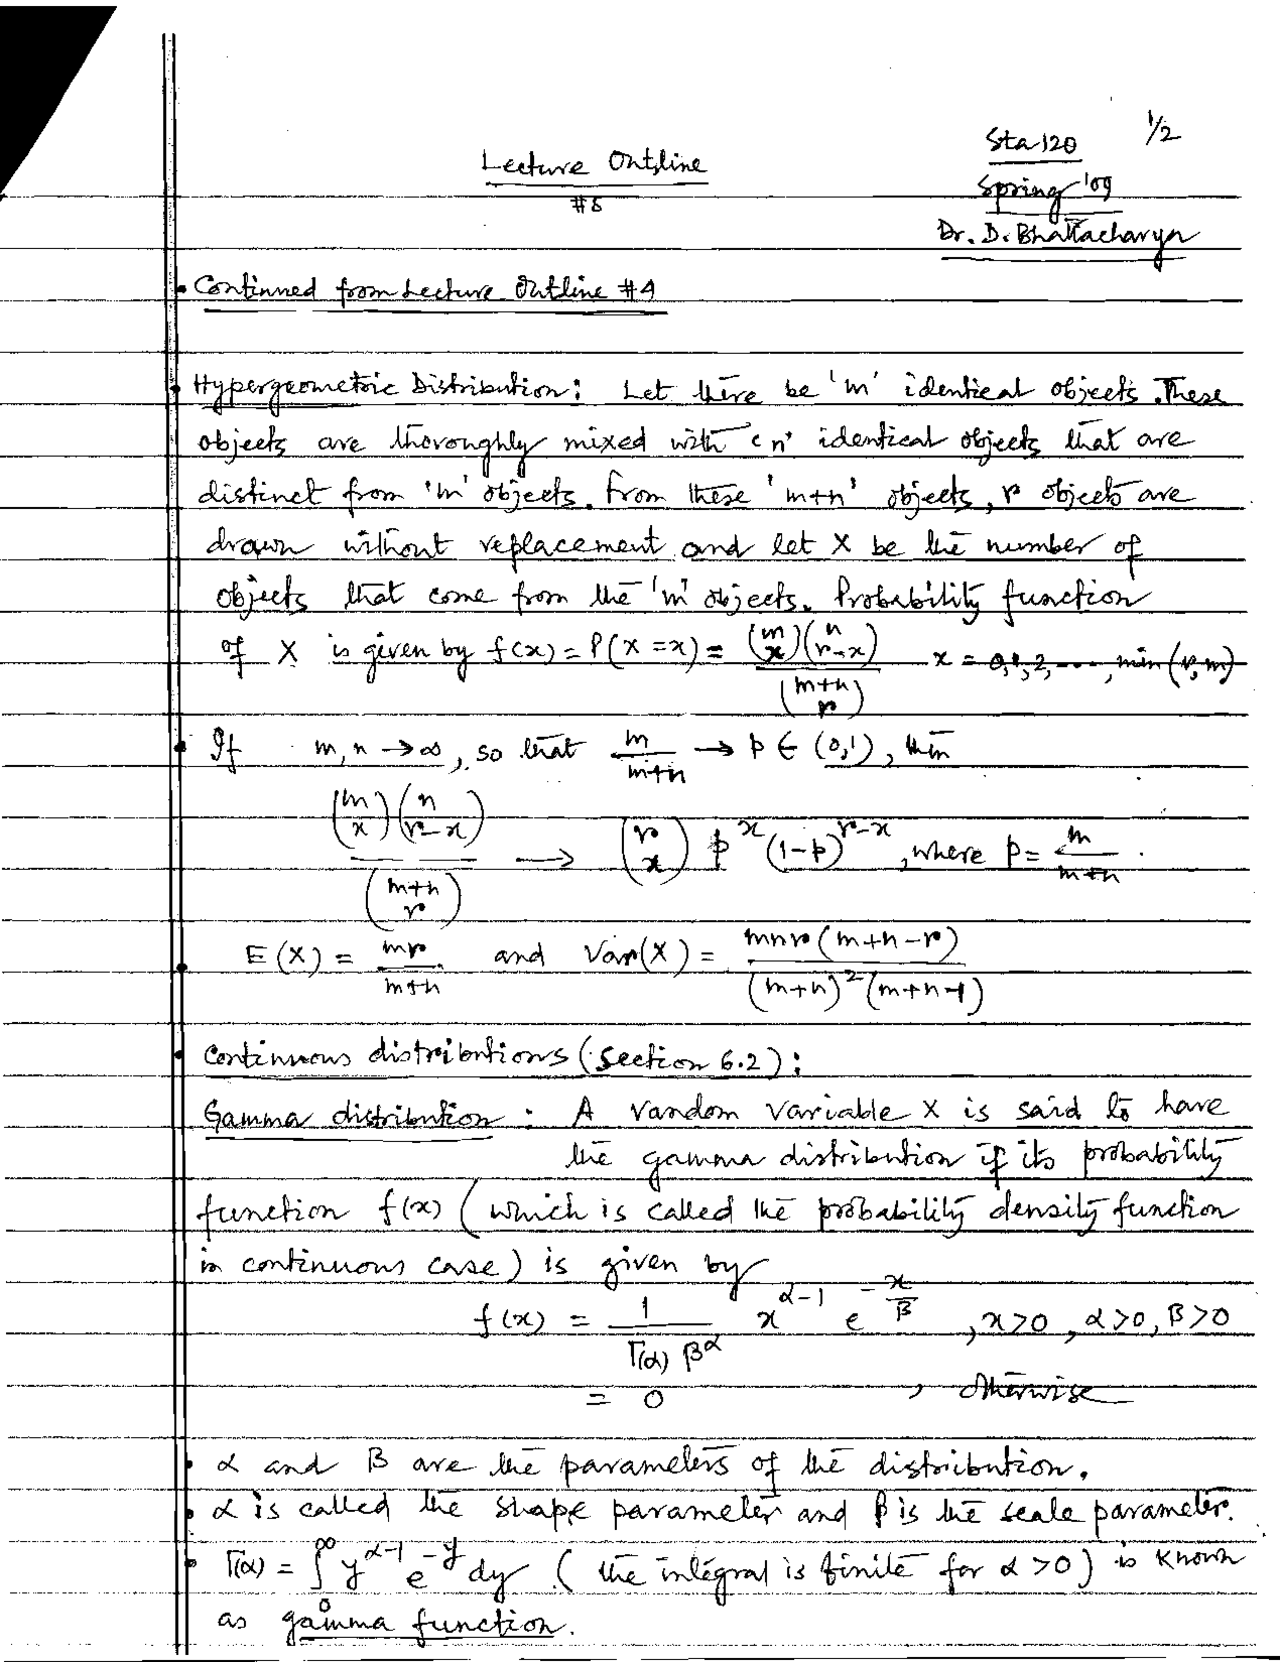 1/2
Sta 120
Lecture Outline
#5
Spring '09
Dr. D. Bhattacharya
• Continued from Lecture Outline #4
• Hypergeometric Distribution: Let there be 'm' identical objects. These
objects are thoroughly mixed with 'n' identical objects that are
distinct from 'm' objects. From these 'm+n' objects, r objects are
drawn without replacement and let X be the number of
objects that come from the 'm' objects. Probability function
of X is given by f(x) = P(X = x) = \frac{\binom{m}{x}\binom{n}{r-x}}{\binom{m+n}{r}} x = 0, 1, 2, ..., min(r, m)
• If m, n → ∞, so that \frac{m}{m+n} → p ∈ (0,1), then
\frac{\binom{m}{x}\binom{n}{r-x}}{\binom{m+n}{r}} → \binom{r}{x} p^x (1-p)^{r-x}, where p = \frac{m}{m+n}.
• E(X) = \frac{mr}{m+n} and Var(X) = \frac{mnr(m+n-r)}{(m+n)^2(m+n-1)}
• Continuous distributions (Section 6.2):
Gamma distribution: A random variable X is said to have
the gamma distribution if its probability
function f(x) (which is called the probability density function
in continuous case) is given by
f(x) = \frac{1}{Γ(α) β^α} x^{α-1} e^{-\frac{x}{β}}, x>0, α>0, β>0
= 0 , otherwise
• α and β are the parameters of the distribution.
• α is called the shape parameter and β is the scale parameter.
• Γ(α) = ∫_0^∞ y^{α-1} e^{-y} dy (the integral is finite for α>0) is known
as gamma function.